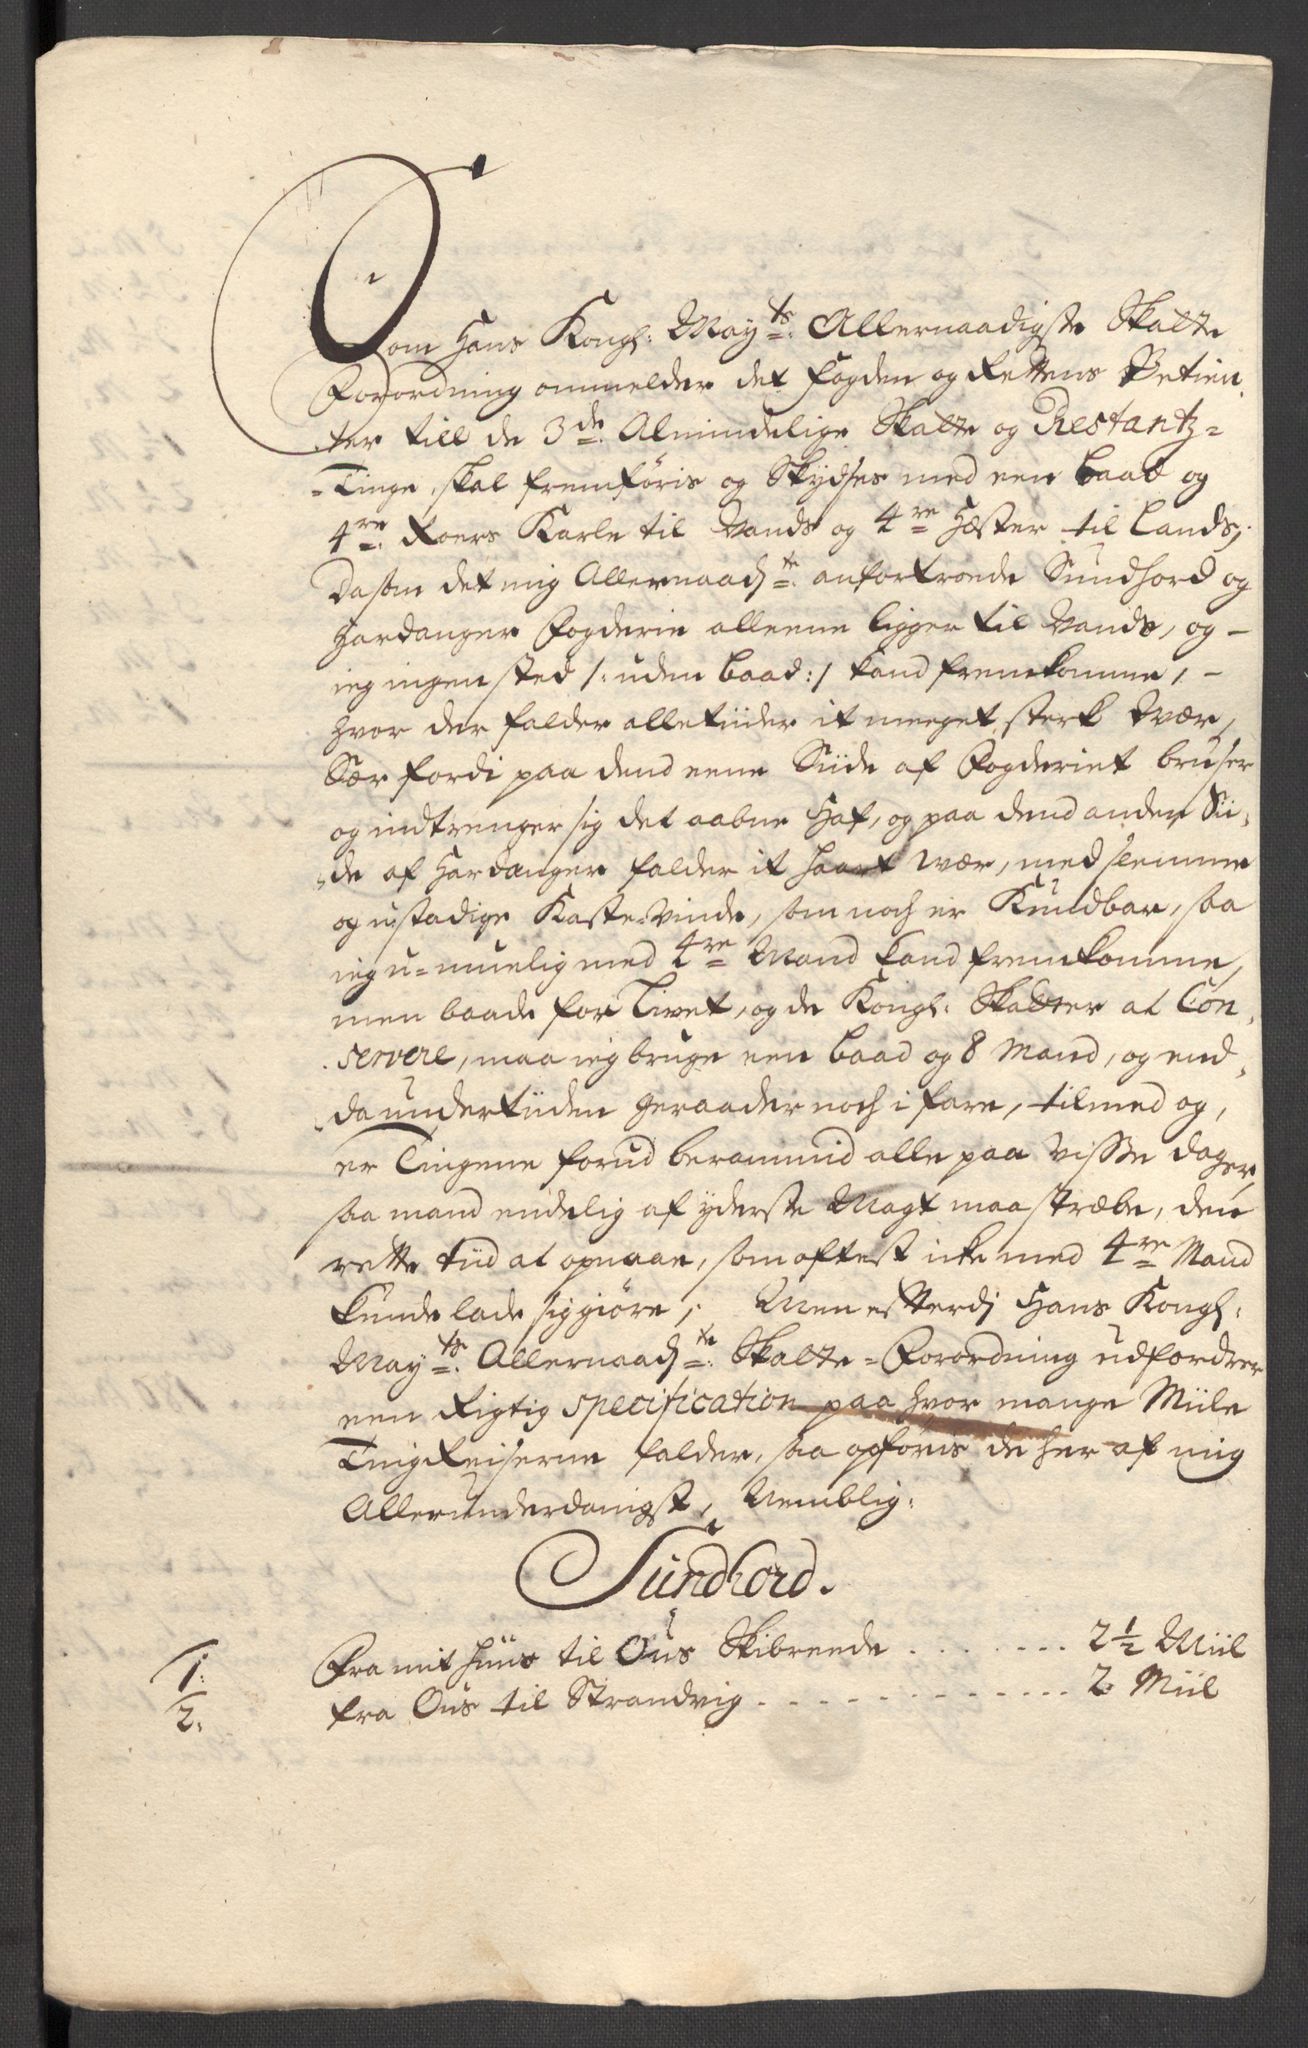 Som Hans Kongl: May:ts Allernaadigste Skatte
Forordning ommelder det Fogden og Rettens Betien
ter till de 3de Almindelige Skatte og Restantz=
=Tinge, skal fremføris og Skydses med een baad og
4re Roers Karle til Vands og 4re Hæster til Lands;
Da som det mig Allernaadste anfortroede Sundhord og
Hardanger Fogderie alleene ligger til Vands, og -
ieg ingensted /: uden baad :/ kand fremkomme, -
hvor der falder alletiider it meeget sterk Vær,
Sær fordi paa dend eene Siide af Fogderiet bruser
og indtrenger sig det aabne Haf, og paa dend anden Sii-
de af Hardanger falder it haart wær, med slemme
og ustadige Kaste-Vinde, som noch er Kundbar, saa
ieg u=muelig med 4re Mand kand fremkomme,
men baade for Livet, og de Kongl: Skatter at Con-
servere, maa ieg bruge een baad og 8 Mand, og end-
da undertiiden geraader noch i fare, tilmed og,
er Tingene forud berammid alle paa Visse dager,
saa mand endelig af yderste Magt maa stræbe, den
rette tiid at opnaae, som oftest icke med 4re Mand
kunde lade sig giøre; Men efterdj Hans Kongl:
May:ts Allernaadste Skatte=Forordning udfordrer
een Rigtig specification paa hvor mange Miile
Tingreiserne falder, saa opføris de her af mig
Allerunderdanigst, Nemblig:
Sundhord.
1: Fra mit huus til Ous Skibreede . . . . . . . 2 1/2 Miil
2: fra Ous til Strandvig . . . . . . . . . . . . . 2: Miil